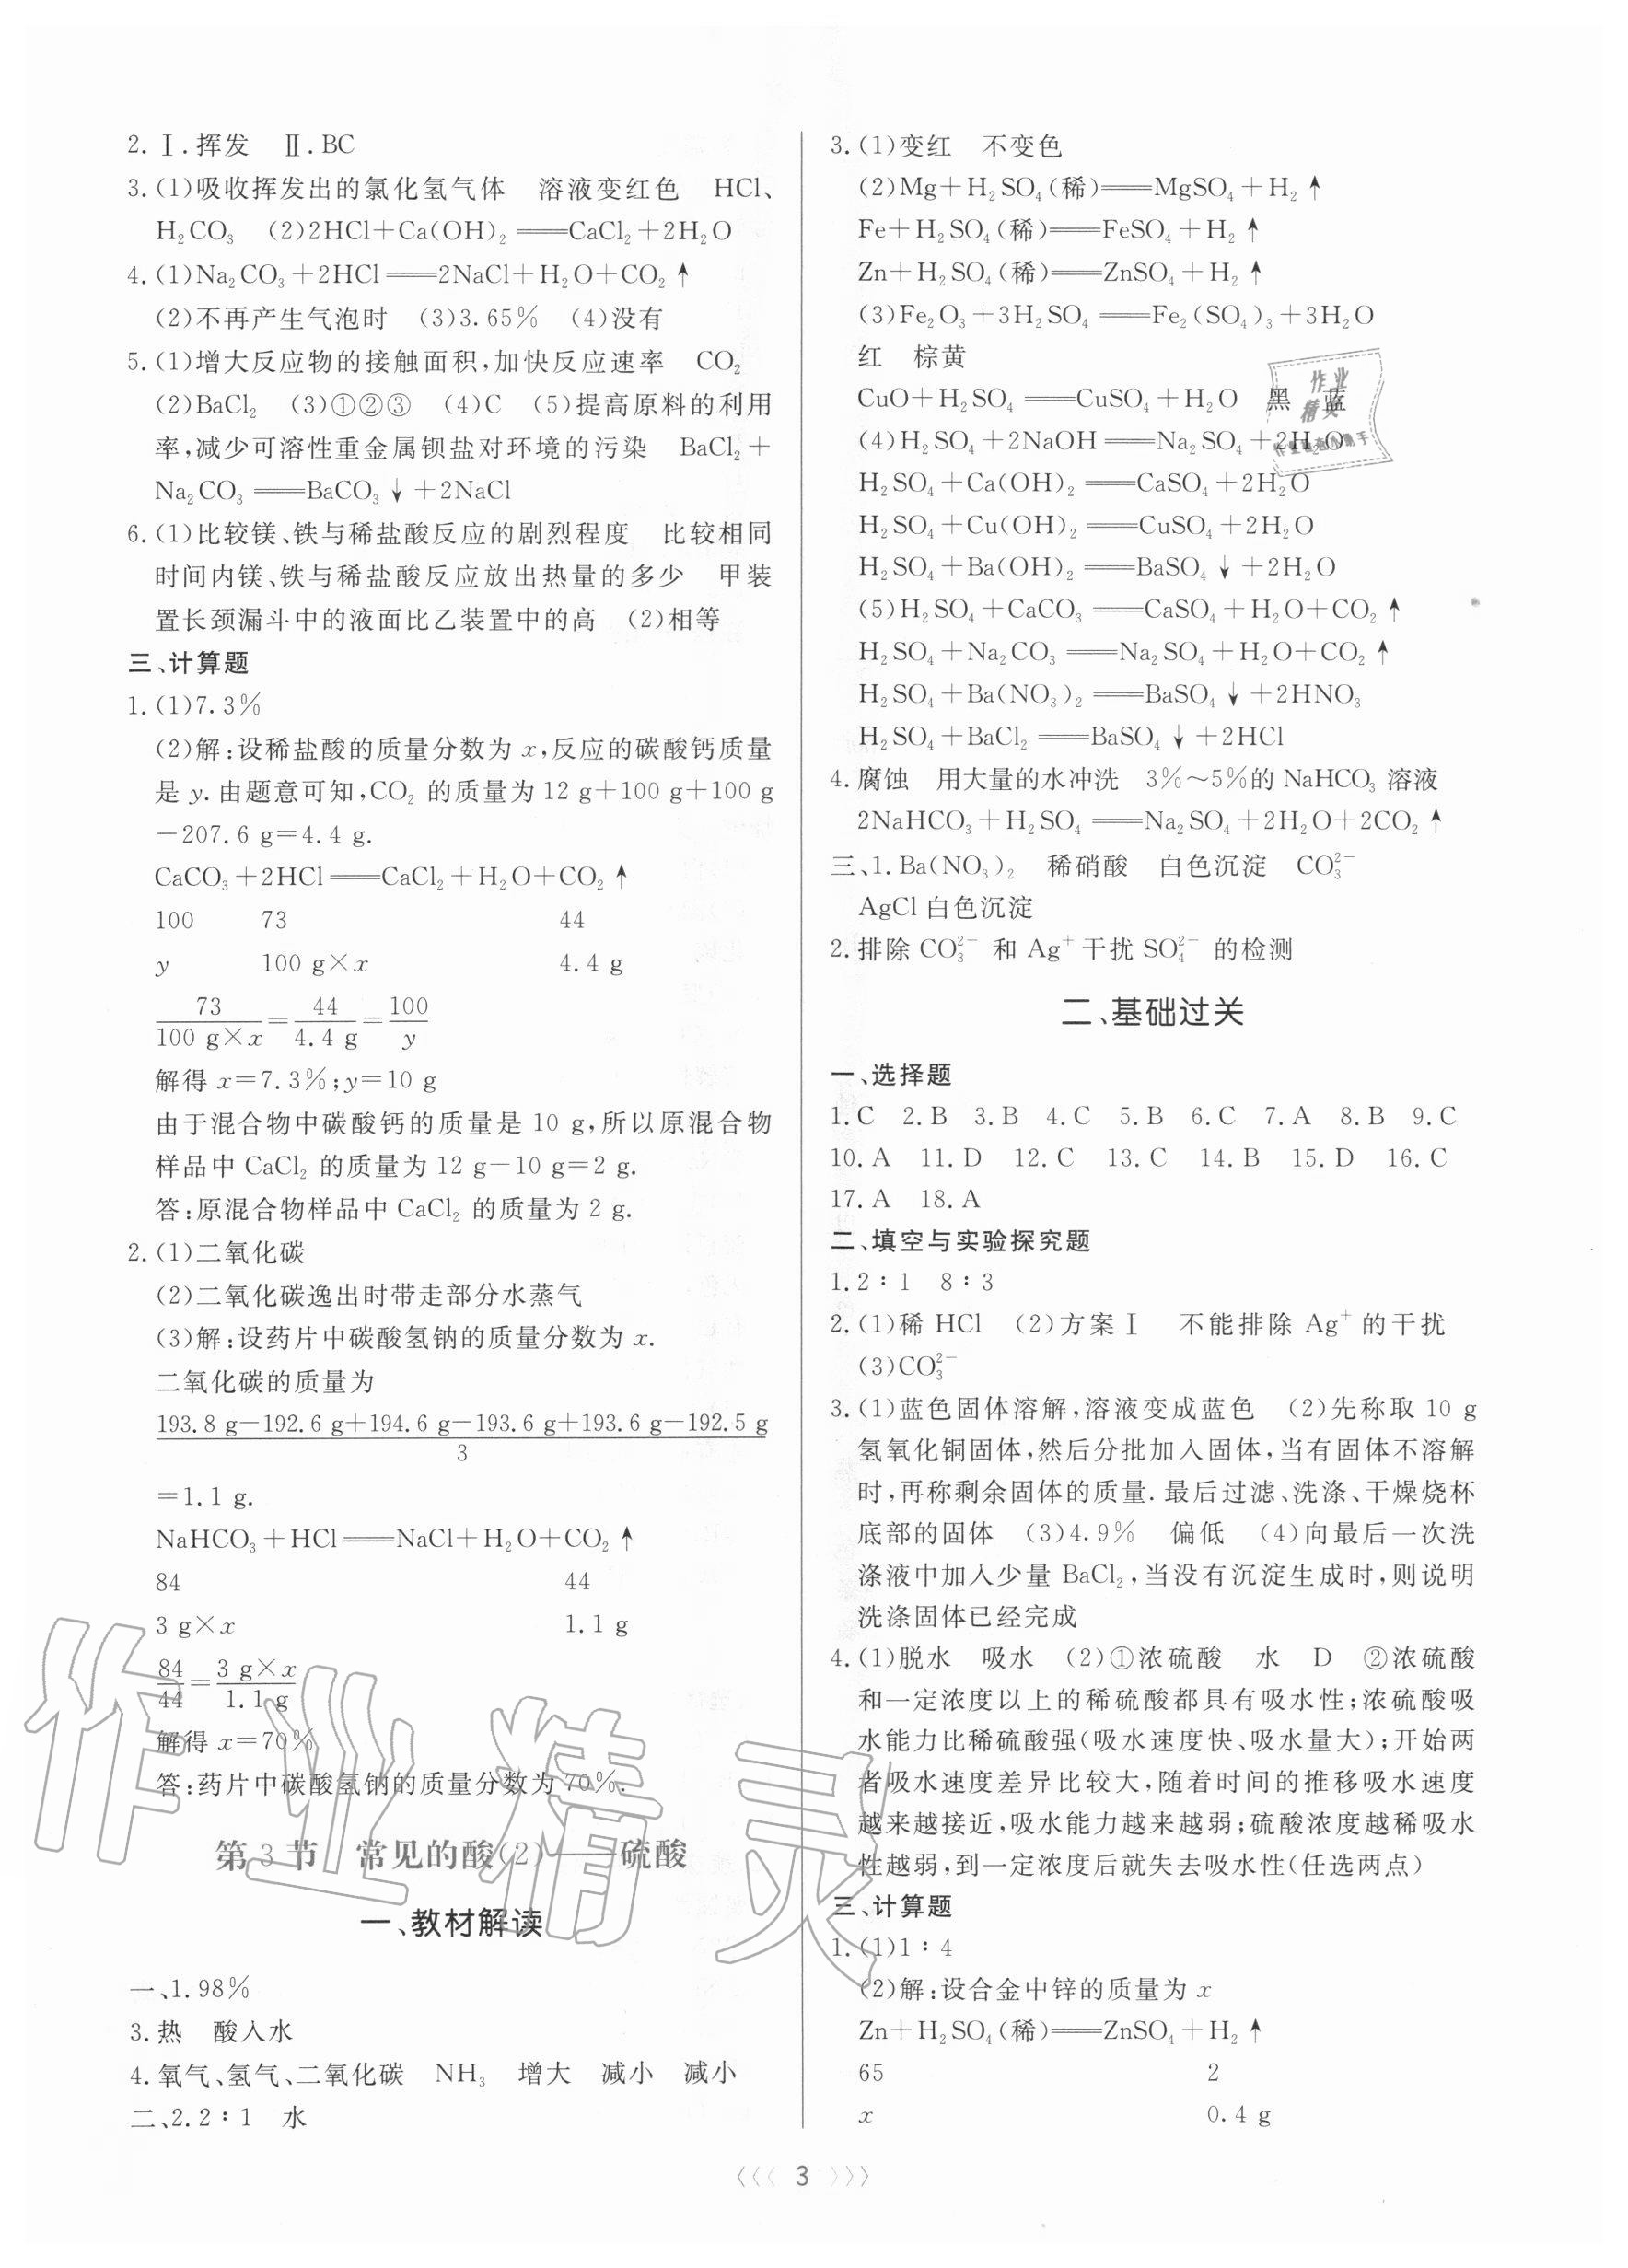 2.Ⅰ.挥发 Ⅱ.BC
3.(1)吸收挥发出的氯化氢气体 溶液变红色 HCl、
H₂CO₃ (2)2HCl+Ca(OH)₂══CaCl₂+2H₂O
4.(1)Na₂CO₃+2HCl══2NaCl+H₂O+CO₂↑
(2)不再产生气泡时 (3)3.65% (4)没有
5.(1)增大反应物的接触面积,加快反应速率 CO₂
(2)BaCl₂ (3)①②③ (4)C (5)提高原料的利用
率,减少可溶性重金属钡盐对环境的污染 BaCl₂+
Na₂CO₃══BaCO₃↓+2NaCl
6.(1)比较镁、铁与稀盐酸反应的剧烈程度 比较相同
时间内镁、铁与稀盐酸反应放出热量的多少 甲装
置长颈漏斗中的液面比乙装置中的高 (2)相等
三、计算题
1.(1)7.3%
(2)解:设稀盐酸的质量分数为x,反应的碳酸钙质量
是y.由题意可知,CO₂的质量为12 g+100 g+100 g
-207.6 g=4.4 g.
CaCO₃+2HCl══CaCl₂+H₂O+CO₂↑
100 73 44
y 100 g×x 4.4 g
73/(100 g×x)=44/(4.4 g)=100/y
解得x=7.3%;y=10 g
由于混合物中碳酸钙的质量是10 g,所以原混合物
样品中CaCl₂的质量为12 g-10 g=2 g.
答:原混合物样品中CaCl₂的质量为2 g.
2.(1)二氧化碳
(2)二氧化碳逸出时带走部分水蒸气
(3)解:设药片中碳酸氢钠的质量分数为x.
二氧化碳的质量为
193.8 g-192.6 g+194.6 g-193.6 g+193.6 g-192.5 g
3
=1.1 g.
NaHCO₃+HCl══NaCl+H₂O+CO₂↑
84 44
3 g×x 1.1 g
84/44=(3 g×x)/(1.1 g)
解得x=70%
答:药片中碳酸氢钠的质量分数为70%.
第3节 常见的酸(2)——硫酸
一、教材解读
一、1.98%
3.热 酸入水
4.氧气、氢气、二氧化碳 NH₃ 增大 减小 减小
二、2.2∶1 水
3.(1)变红 不变色
(2)Mg+H₂SO₄(稀)══MgSO₄+H₂↑
Fe+H₂SO₄(稀)══FeSO₄+H₂↑
Zn+H₂SO₄(稀)══ZnSO₄+H₂↑
(3)Fe₂O₃+3H₂SO₄══Fe₂(SO₄)₃+3H₂O
红 棕黄
CuO+H₂SO₄══CuSO₄+H₂O 黑 蓝
(4)H₂SO₄+2NaOH══Na₂SO₄+2H₂O
H₂SO₄+Ca(OH)₂══CaSO₄+2H₂O
H₂SO₄+Cu(OH)₂══CuSO₄+2H₂O
H₂SO₄+Ba(OH)₂══BaSO₄↓+2H₂O
(5)H₂SO₄+CaCO₃══CaSO₄+H₂O+CO₂↑
H₂SO₄+Na₂CO₃══Na₂SO₄+H₂O+CO₂↑
H₂SO₄+Ba(NO₃)₂══BaSO₄↓+2HNO₃
H₂SO₄+BaCl₂══BaSO₄↓+2HCl
4.腐蚀 用大量的水冲洗 3%~5%的NaHCO₃溶液
2NaHCO₃+H₂SO₄══Na₂SO₄+2H₂O+2CO₂↑
三、1.Ba(NO₃)₂ 稀硝酸 白色沉淀 CO₃²⁻
AgCl白色沉淀
2.排除CO₃²⁻和Ag⁺干扰SO₄²⁻的检测
二、基础过关
一、选择题
1.C 2.B 3.B 4.C 5.B 6.C 7.A 8.B 9.C
10.A 11.D 12.C 13.C 14.B 15.D 16.C
17.A 18.A
二、填空与实验探究题
1.2∶1 8∶3
2.(1)稀HCl (2)方案Ⅰ 不能排除Ag⁺的干扰
(3)CO₃²⁻
3.(1)蓝色固体溶解,溶液变成蓝色 (2)先称取10 g
氢氧化铜固体,然后分批加入固体,当有固体不溶解
时,再称剩余固体的质量.最后过滤、洗涤、干燥烧杯
底部的固体 (3)4.9% 偏低 (4)向最后一次洗
涤液中加入少量BaCl₂,当没有沉淀生成时,则说明
洗涤固体已经完成
4.(1)脱水 吸水 (2)①浓硫酸 水 D ②浓硫酸
和一定浓度以上的稀硫酸都具有吸水性;浓硫酸吸
水能力比稀硫酸强(吸水速度快、吸水量大);开始两
者吸水速度差异比较大,随着时间的推移吸水速度
越来越接近,吸水能力越来越弱;硫酸浓度越稀吸水
性越弱,到一定浓度后就失去吸水性(任选两点)
三、计算题
1.(1)1∶4
(2)解:设合金中锌的质量为x
Zn+H₂SO₄(稀)══ZnSO₄+H₂↑
65 2
x 0.4 g
〈〈〈 3 〉〉〉
作业精灵